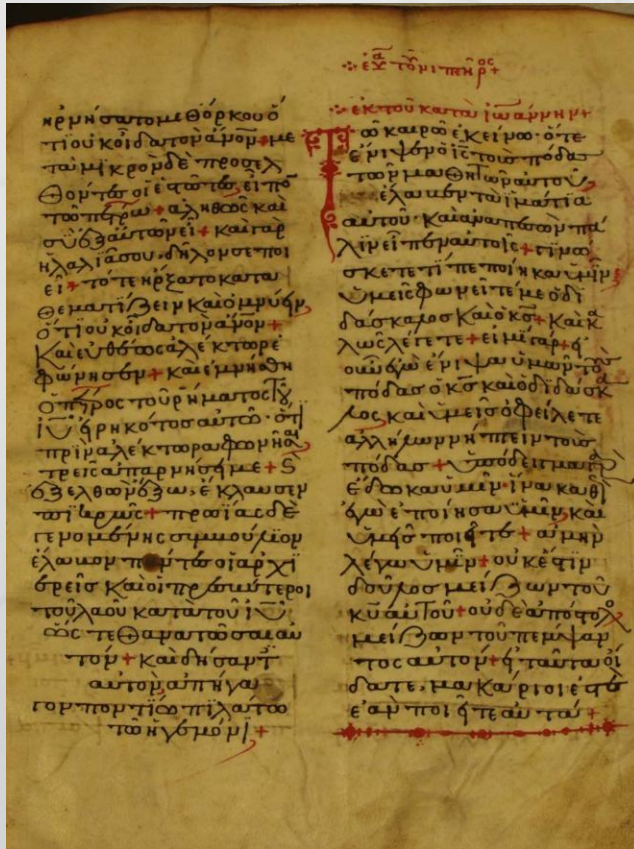 ἠρνήσατο μεθ ὅρκου ὅ
τι οὐκ οἶδα τὸν ἄνον + με
τὰ μικρὸν δὲ προσελ
θόντες οἱ ἑστῶτες, εἶπο
τῶ πέτρω + ἀληθῶς καὶ
σὺ ἐξ αὐτῶν εἶ + καὶ γὰρ
ἡ λαλιά σου δῆλόν σε ποι
εῖ + τότε ἤρξατο κατα
θεματίζειν καὶ ὀμνύειν,
ὅτι οὐκ οἶδα τὸν ἄνον +
καὶ εὐθέως ἀλέκτωρ ἐ
φώνησεν + καὶ ἐμνήσθη
ὁ πέτρος τοῦ ῥήματος τοῦ
ιυ εἰρηκότος αὐτῶ ὅτι
πρὶν ἀλέκτορα φωνῆσαι
τρεῖς ἀπαρνήση με + καὶ
ἐξελθὼν ἔξω, ἔκλαυσεν
πικρῶς + πρωΐας δὲ
γενομένης συμβούλιον
ἔλαβον πάντες οἱ ἀρχι
ερεῖς καὶ οἱ πρεσβύτεροι
τοῦ λαοῦ κατὰ τοῦ ιυ
ὥστε θανατῶσαι αὐ
τόν + καὶ δήσαντες
αὐτὸν, ἀπήγα
γον ποντίω πιλάτω
τῶ ἡγεμόνι +
τὸν νιπτῆρος +
ἐκ τοῦ κατὰ ἰωάννην +
Τῶ καιρῶ ἐκείνω· ὅτε
ἔνιψεν ὁ ις τοὺς πόδας
τῶν μαθητῶν αὐτοῦ,
ἔλαβεν τὰ ἱμάτια
αὐτοῦ· καὶ ἀναπεσὼν πά
λιν εἶπεν αὐτοῖς + γινώ
σκετε τί πεποίηκα ὑμῖν,
ὑμεῖς φωνεῖτέ με ὁ δι
δάσκαλος καὶ ὁ κς + καὶ κα
λῶς λέγετε + εἰμὶ γάρ + εἰ
οὖν ἐγὼ ἔνιψα ὑμῶν τοὺς
πόδας ὁ κς καὶ ὁ διδάσκα
λος καὶ ὑμεῖς ὀφείλετε
ἀλλήλων νίπτειν τοὺς
πόδας + ὑπόδειγμα γὰρ
ἔδωκα ὑμῖν· ἵνα καθὼς
ἐγὼ ἐποίησα ὑμῖν, καὶ
ὑμεῖς ποιῆτε + ἀμὴν
λέγω ὑμῖν + οὐκ ἔστιν
δοῦλος μείζων τοῦ
κυ αὐτοῦ + οὐδὲ ἀπόστολος
μείζων τοῦ πέμψαν
τος αὐτόν + εἰ ταῦτα οἴ
δατε, μακάριοί ἐστε
ἐὰν ποιῆτε αὐτά +